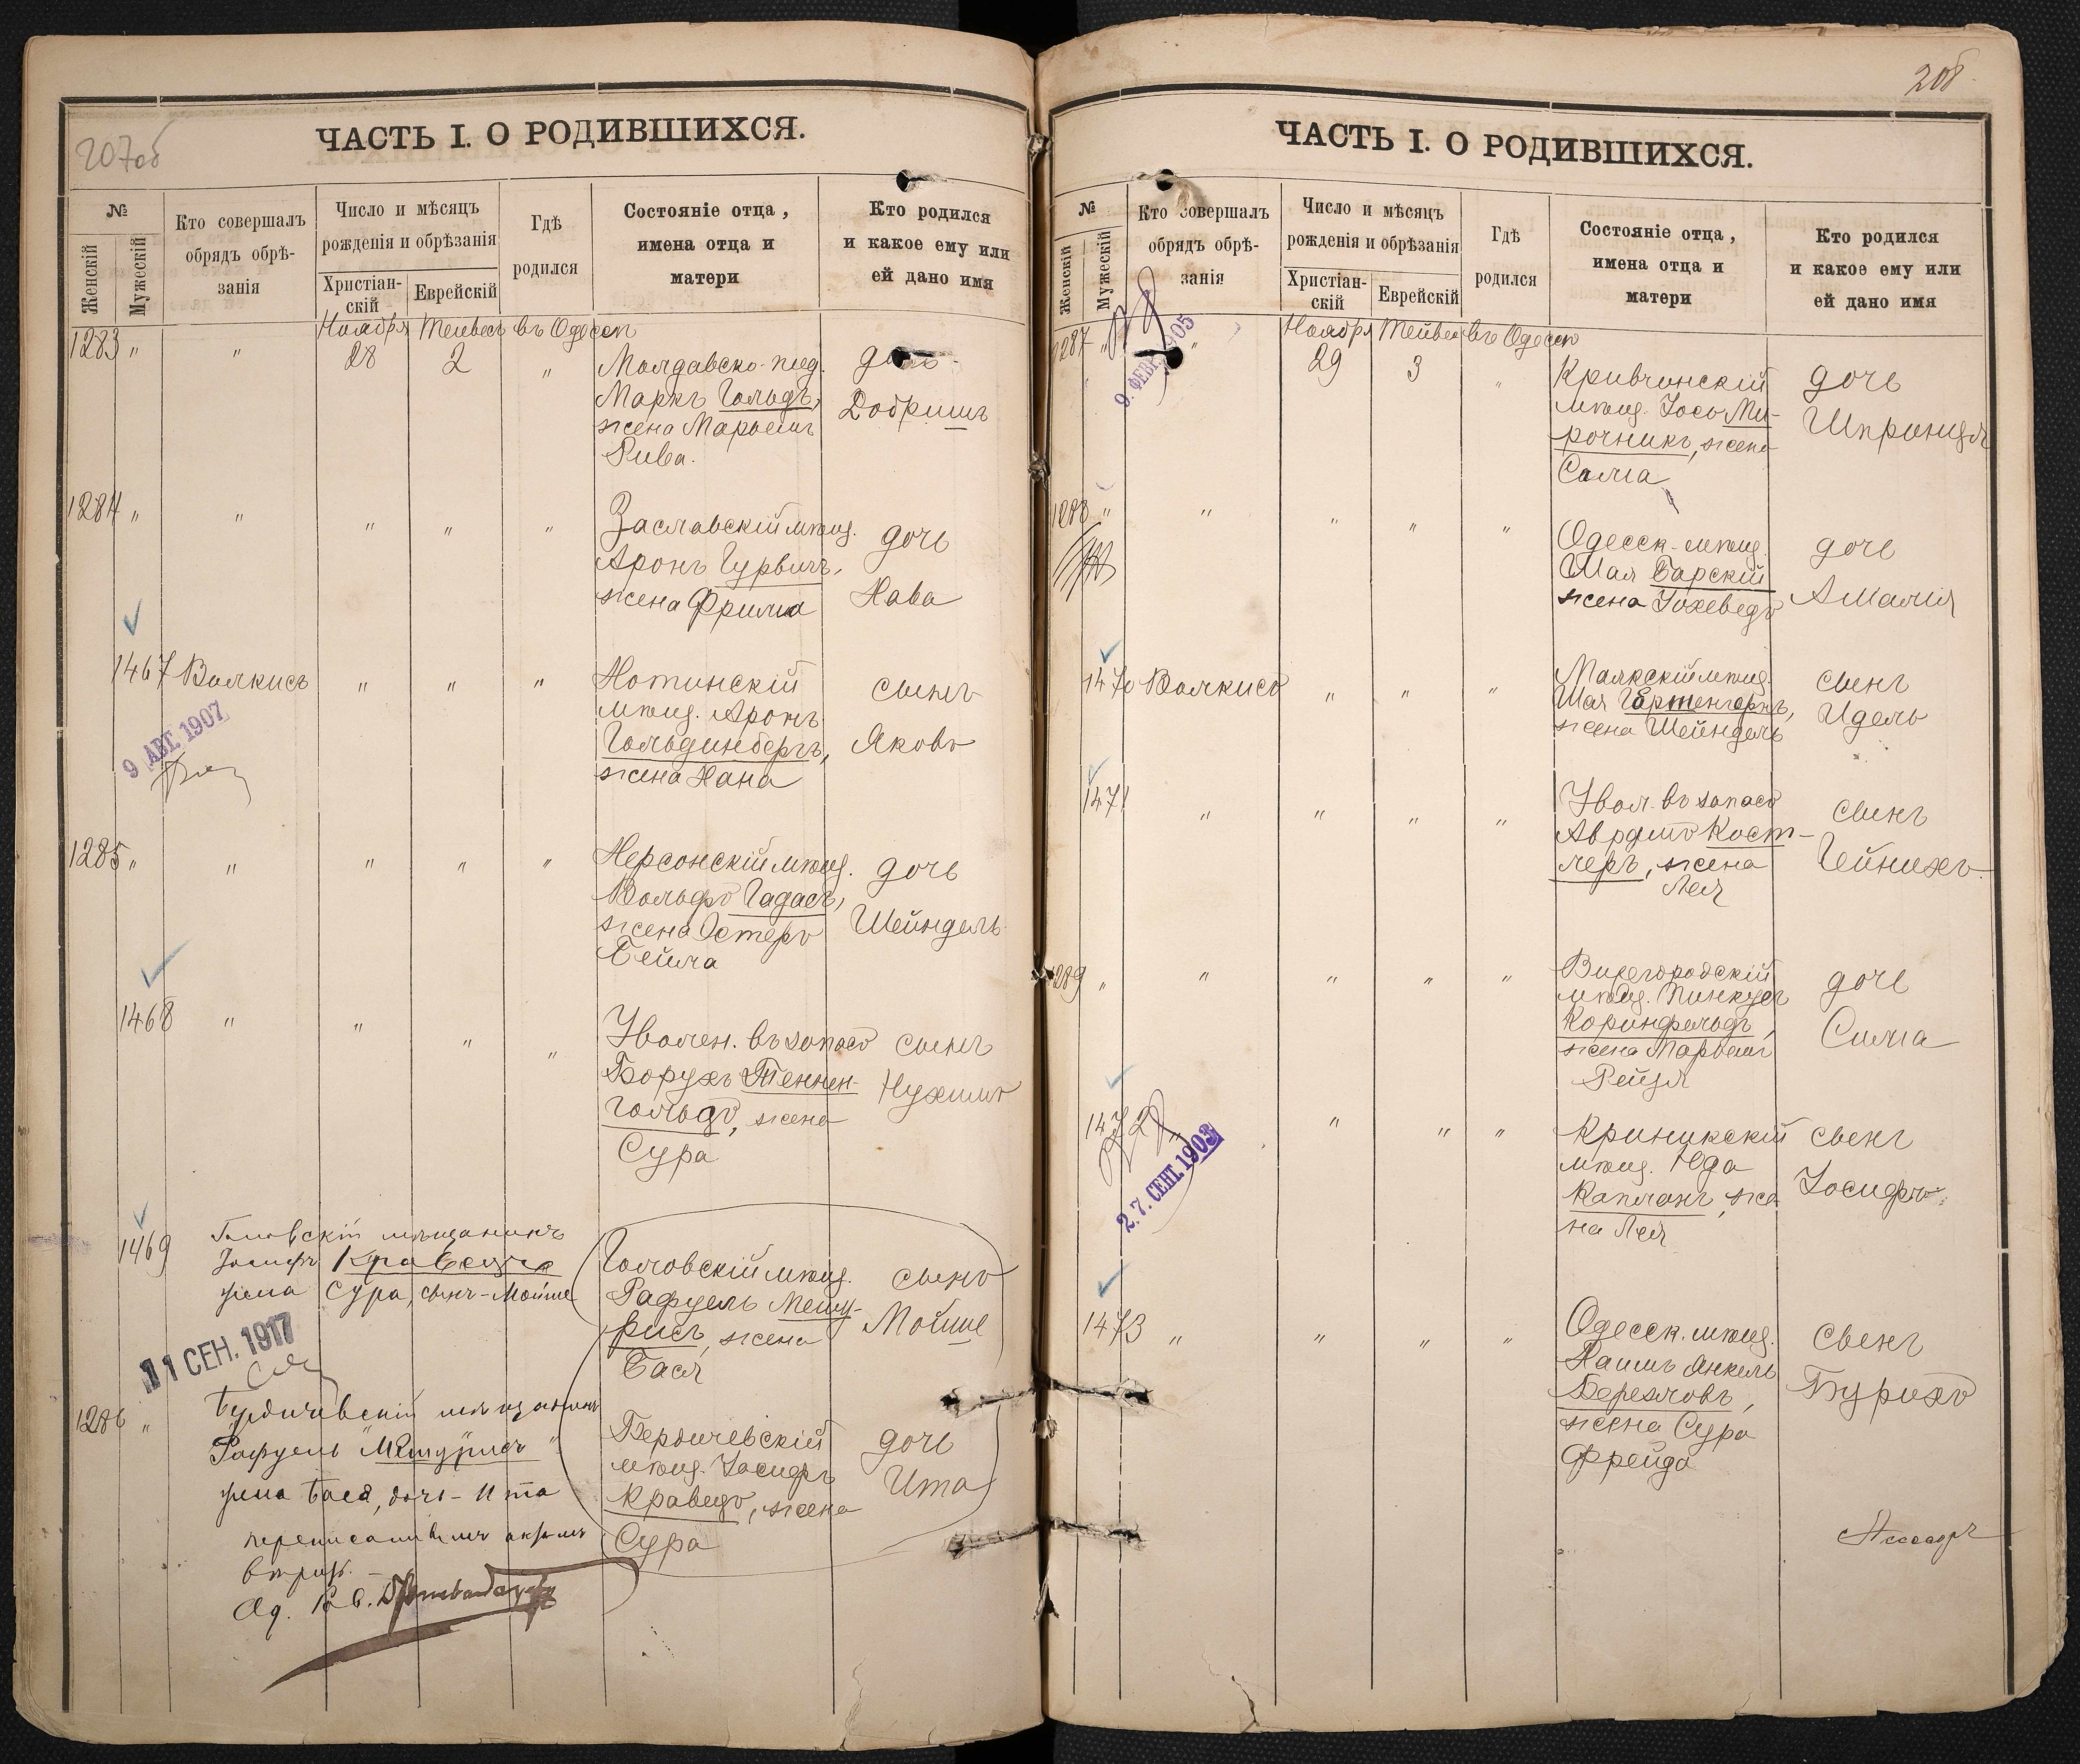 207об
ЧАСТЬ I. О РОДИВШИХСЯ.
№
Женскій
Мужескій
Кто совершалъ
обрядъ обрѣ-
занія
Число и мѣсяцъ
рожденія и обрѣзанія
Христіан-
скій
Еврейскій
Гдѣ
родился
Состояніе отца,
имена отца и
матери
Кто родился
и какое ему или
ей дано имя
Ноября Тейвесъ въ Одессѣ
1283 " " 28 2 "
Молдавско-
Маркъ Гольдъ,
жена Марьемъ
Рива.
дочь
Добришъ
1284 " " " " "
Заславскій мѣщ.
Аронъ Гурвичъ,
жена Фрима
дочь
Хава
1467 Валкисъ " " "
Хотинскій
мѣщ. Аронъ
Гольдинбергъ,
жена Хана
сынъ
Яковъ
9 АВГ. 1907
1285 " " " " "
Херсонскій мѣщ.
Вольфъ Гадасъ,
жена Эстеръ
Бейла
дочь
Шейндель
1468 " " " "
Уволен. въ запасъ
Борухъ Теннен-
гольдъ, жена
Сура
сынъ
Нухимъ
1469
Головскій мѣщанинъ
Іосифъ Кравецъ
жена Сура, сынъ - Мойше
Головскій мѣщ.
Рафуель Мешу-
рисъ, жена
Бася
сынъ
Мойше
11 СЕН. 1917
1286 "
Бердичевскій мѣщанинъ
Рафуель "Мешурисъ"
жена Бася, дочь - Ита
Бердичевскій
мѣщ. Іосифъ
Кравецъ, жена
Сура
дочь
Ита
Од. Рав.
208
ЧАСТЬ I. О РОДИВШИХСЯ.
№
Женскій
Мужескій
Кто совершалъ
обрядъ обрѣ-
занія
Число и мѣсяцъ
рожденія и обрѣзанія
Христіан-
скій
Еврейскій
Гдѣ
родился
Состояніе отца,
имена отца и
матери
Кто родился
и какое ему или
ей дано имя
Ноября Тейвесъ въ Одессѣ
1287 " " 29 3 "
9. ФЕВР. 1905
Кривчинскій
мѣщ. Іосъ Ми-
рочникъ, жена
Сима
дочь
Шпринця
1288 " " " " "
Одесск. мѣщ.
Шая Барскій
жена Іохеведъ
дочь
Амалія
1470 Валкисъ " " "
Маякскій мѣщ.
Шая Гертенгорнъ,
жена Шейндель
сынъ
Идель
1471 " " " "
Увол. въ запасъ
Аврумъ Кост-
леръ, жена
Лея
сынъ
Гейнихъ
1289 " " " " "
мѣщ. Пинкусъ
Коринфельдъ,
жена Марьемъ
Рейзя
дочь
Сима
1472 " " "
27. СЕНТ. 1903
Криникскій
мѣщ. Юда
Капланъ, же-
на Лея
сынъ
Іосифъ
1473 " " " "
Одесск. мѣщ.
Хаимъ Янкель
Березловъ,
жена Сура
Фрейда
сынъ
Бурихъ